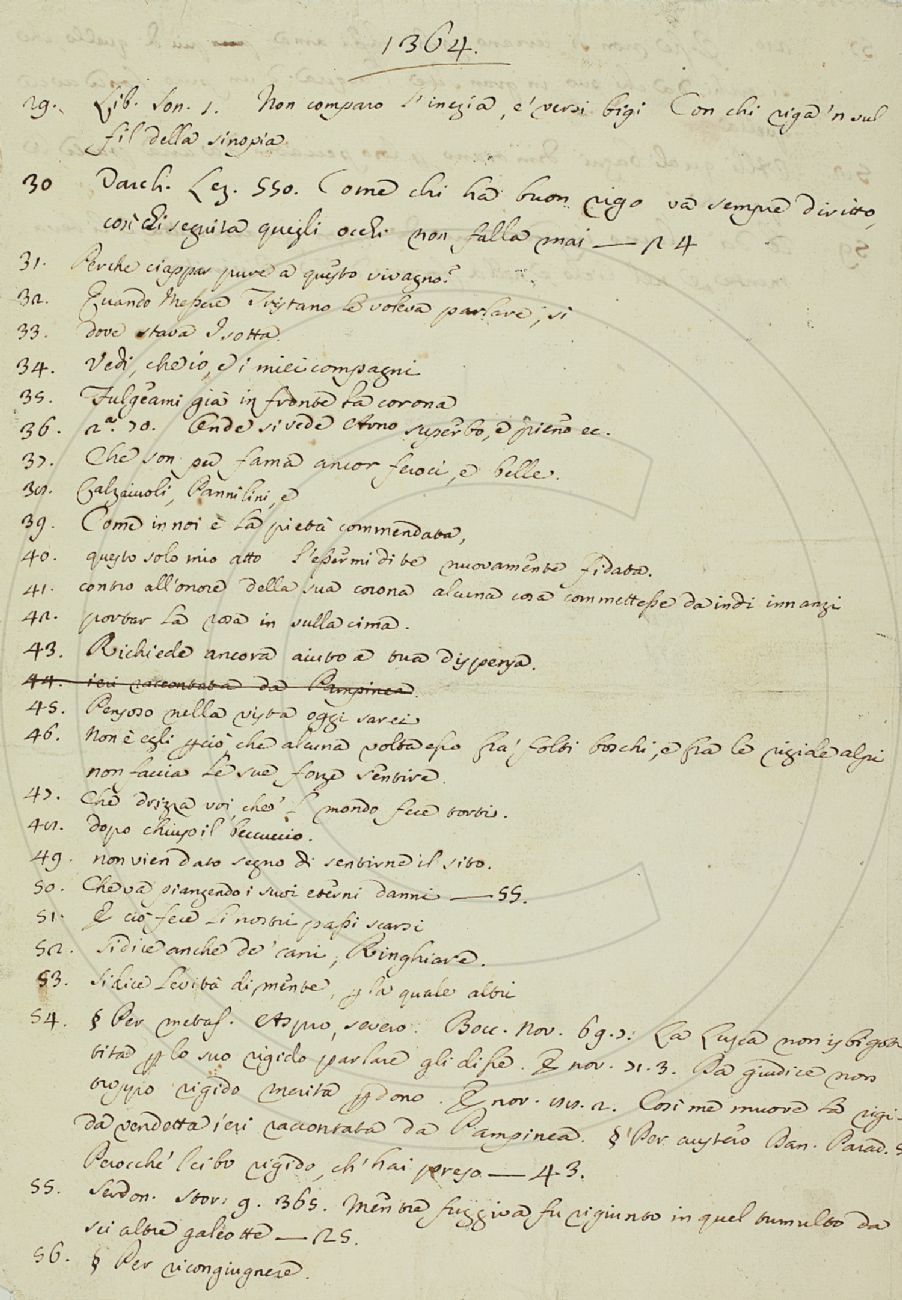 1364.
29. Lib. Son. 1. Non comparo l'inezia, e' versi bigi Con chi riga 'n sul
fil della sinopia
30 Varch. Lez. 550. Come chi ha buon rigo va sempre diritto,
così chi seguita quegli occhi non falla mai — 24
31. Perche ciappar pure a questo vivagno?
32. Quando Messere Tristano le voleva parlare, si
33. dove stava Isotta.
34. Vedi, che io, e i miei compagni
35. Fulgeami già in fronte la corona
36. 2.ª 70. Onde si vede Arno superbo, e pieno ec.
37. Che son per fama ancor feroci, e belle.
38. Calzaiuoli, Pannilini, e
39. Come in noi è la pietà commendata,
40. questo solo mio atto l'essermi di te nuovamente fidata.
41. contro all'onore della sua corona alcuna cosa commettesse da indi innanzi
42. portar la rosa in sulla cima.
43. Richiede ancora aiuto a tua dispensa.
44. ieri raccontata da Pampinea.
45. Pensoso nella vista oggi sarei
46. Non è egli perciò, che alcuna volta esso fra' folti boschi, e fra le rigide alpi
non faccia le sue forze sentire.
47. Che drizza voi, che 'l mondo fece torti.
48. dopo chiuso il beccuccio.
49. non vien dato segno di sentirne il sito.
50. Che va piangendo i suoi eterni danni — 55.
51. E ciò fece li nostri passi scarsi
52. Si dice anche de' cani, Ringhiare.
53. Si dice Levità di mente, per la quale altri
54. § Per metaf. Aspro, severo. Bocc. Nov. 69. 7: La Lusca non isbigotti-
tita per lo suo rigido parlare gli disse. E nov. 71. 3. Da giudice non
troppo rigido merita perdono. E nov. 88. 2. Così me muove la rigi-
da vendetta ieri raccontata da Pampinea. § Per austero Dan. Parad. 5
Perocchè 'l cibo rigido, ch' hai preso — 43.
55. Serdon. Stor. 9. 365. Mentre fuggiva fu rigiunto in quel tumulto da
sei altre galeotte — 25.
56. § Per ricongiugnere.